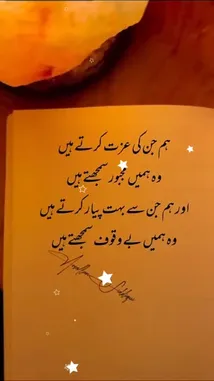 ہم جن کی عزت کرتے ہیں
وہ ہمیں مجبور سمجھتے ہیں
اور ہم جن سے بہت پیار کرتے ہیں
وہ ہمیں بے وقوف سمجھتے ہیں